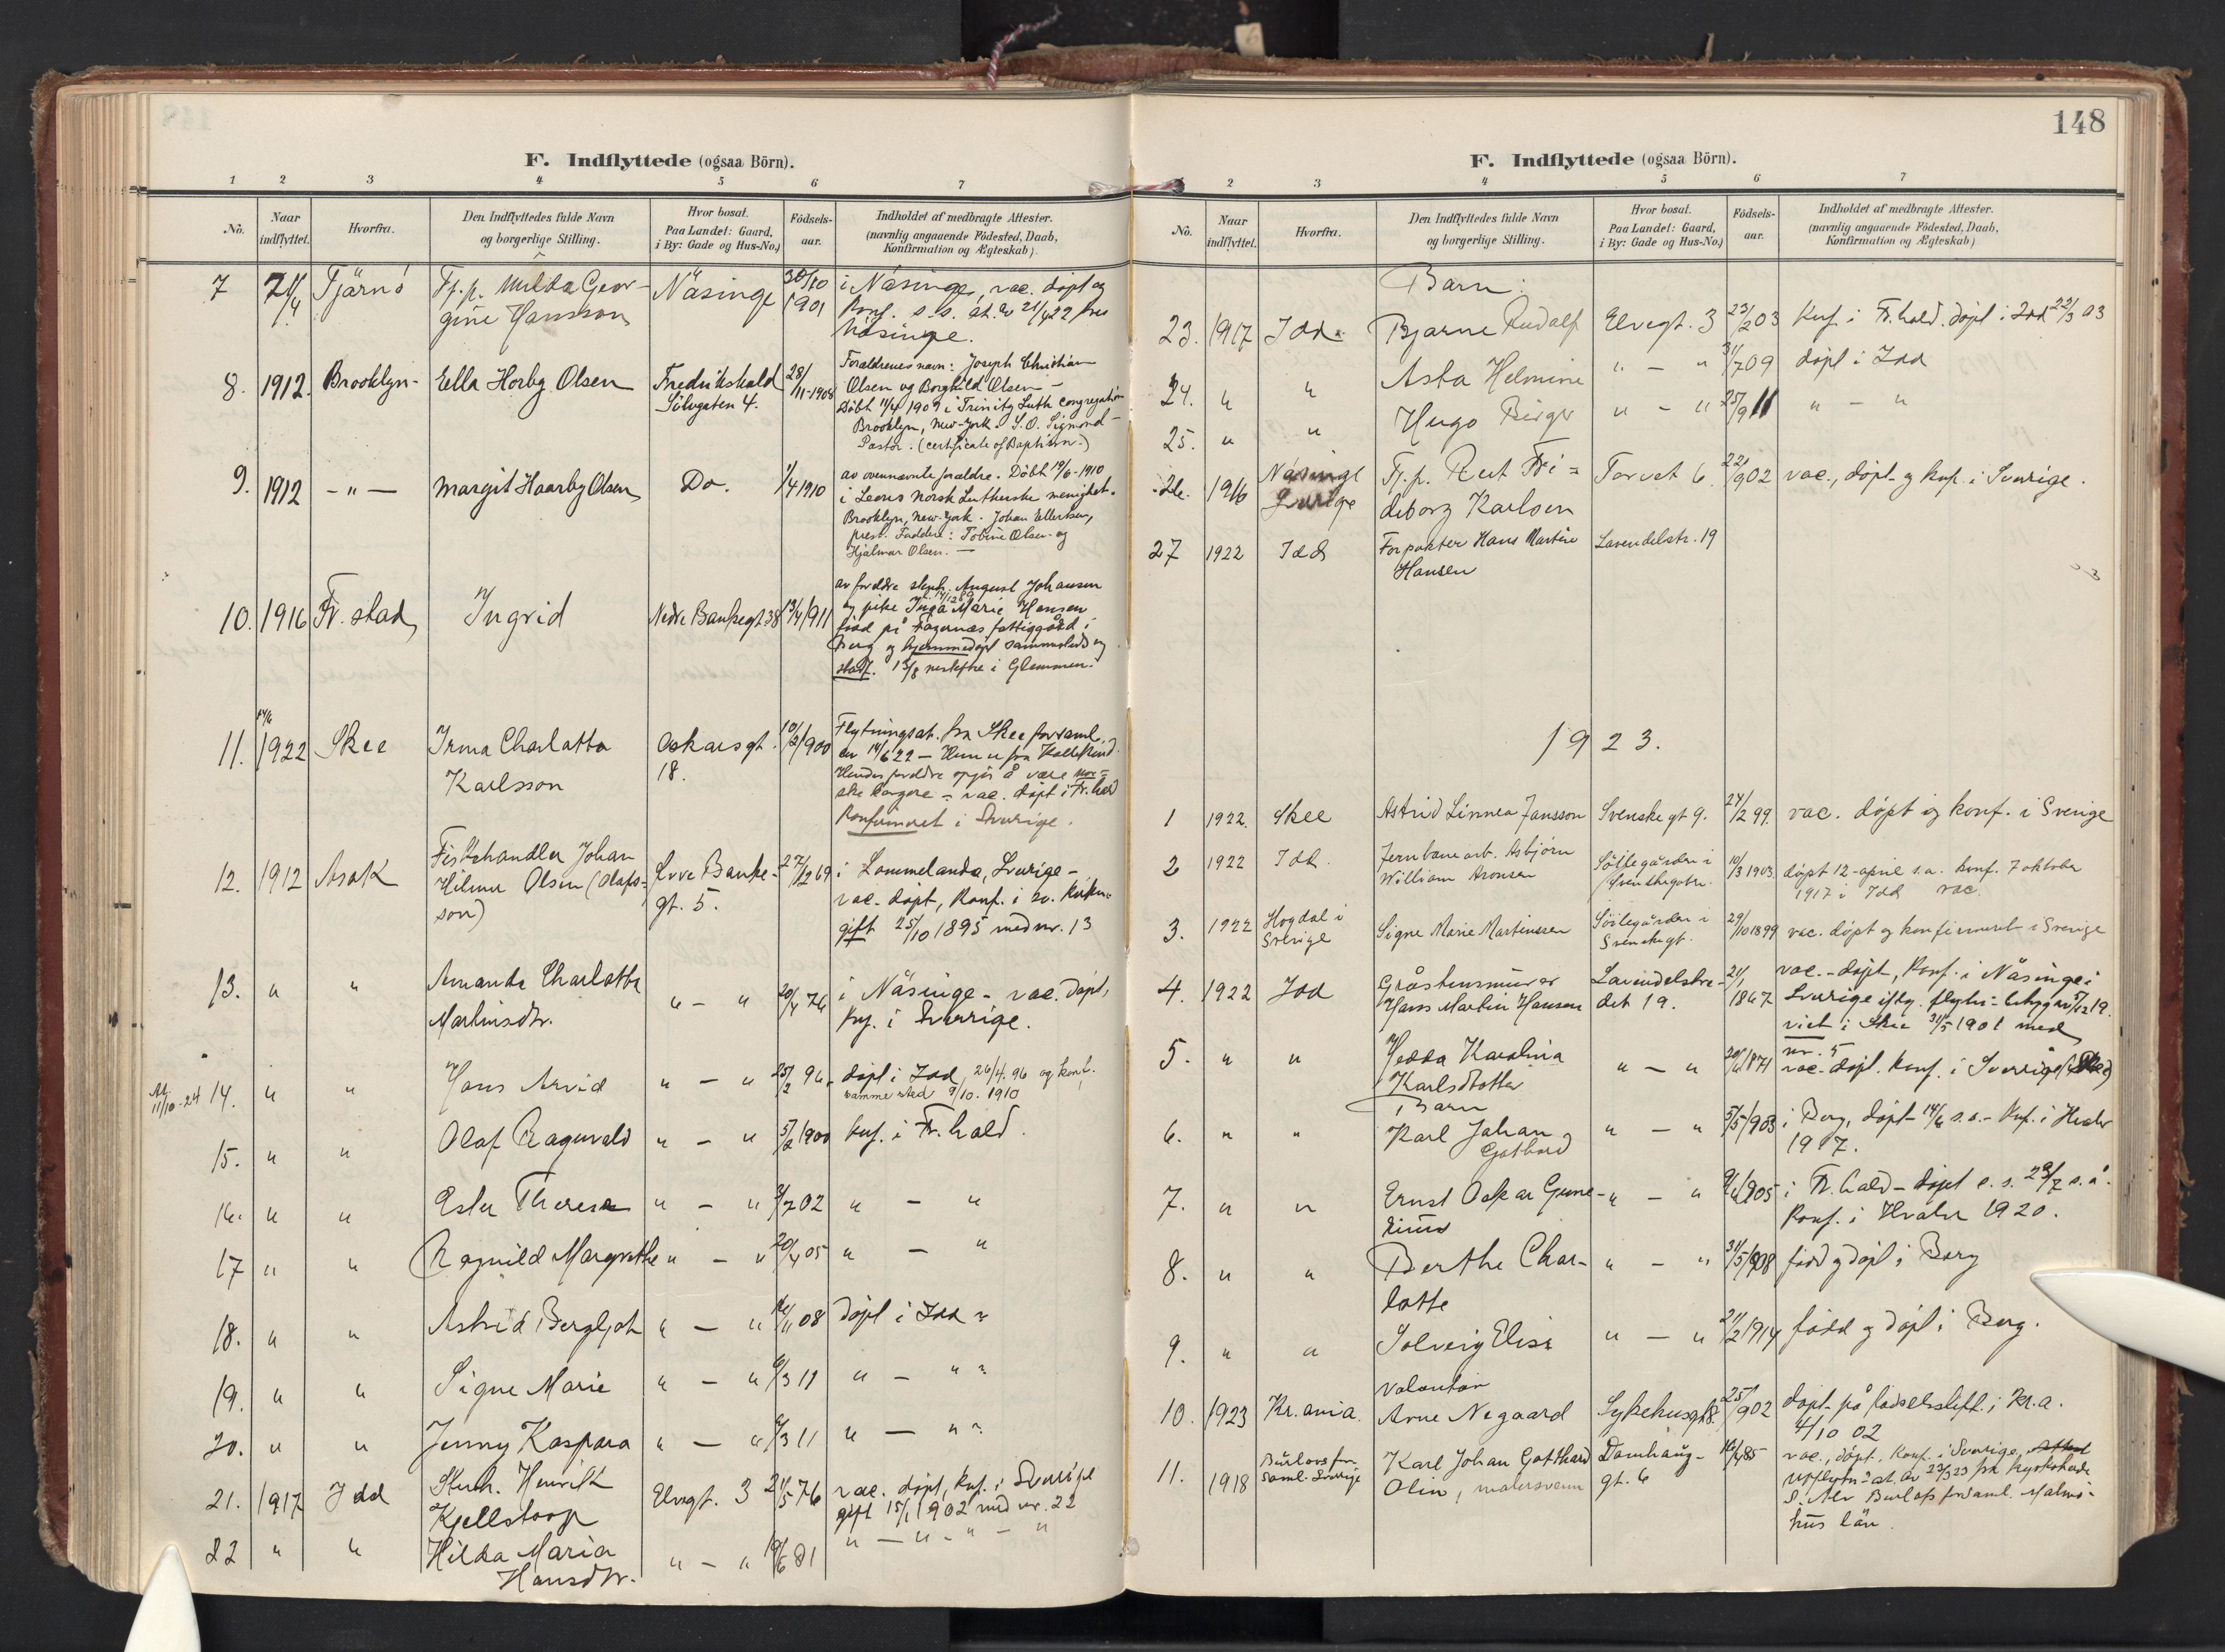 148
F. Indflyttede (ogsaa Börn).
1 2 3 4 5 6 7
No. Naar indflyttet. Hvorfra. Den Indflyttedes fulde Navn og borgerlige Stilling. Hvor bosat. Paa Landet: Gaard, i By: Gade og Hus-No.) Födsels-aar. Indholdet af medbragte Attester. (navnlig angaaende Födested, Daab, Konfirmation og Ægteskab).
7 Tjärnö Fj.p. Milda Geor- Näsinge 30/10 i Näsinge, vac. döpt og
gine Hansson 1901 konf. s.s. at. av 21/4 22 fra
Näsinge.
8. 1912. Brooklyn- Ella Horby Olsen Fredrikshald 28/11-1908 Foreldrenes navn: Joseph Christian
Sölvgaten 4. Olsen og Borghild Olsen -
Döbt 11/4 1909 i Trinity Luth congregation
Brooklyn, New-York. S. O. Sigmond -
Pastor. (certificate of Baptism.)
9. 1912 - " - Margit Haarby Olsen Do. 1/4 1910 av ovennævnte forældre. Döbt 19/6-1910
i Leons Norsk Lutherske menighet.
Brooklyn, New-York. Johan Ellertsen,
prest. Faddere: Tobine Olsen og
Hjalmar Olsen. -
10. 1916 Fr.stad Ingrid Nedre Bankegt 38 13/4 1911 av foreldre August Johansen
og pike Inga Marie Hansen
född på Fagernæs fattiggård i
Berg og hjemmedöpt sammesteds og
stadf. 13/8 nestefter i Glemmen.
11. 14/6 1922 Skee Irma Charlotta Oskarsgt. 10/2 1900 Flytningsat. fra Skee forsaml.
Karlsson 18. av 14/6 22 - Hun er fra
Hendes foreldre opgis å være nor-
ske borgere - vac. döpt i Fr.hald
Konfirmeret i Sverige.
12. 1912 Asak Fiskehandler Johan Övre Banke- 27/12 69 i Lommelanda, Sverige -
Hilmer Olsen (Olafs- gt. 5. vac. döpt, konf. i sv. kirken
son) gift 25/10 1895 med nr. 13
13. " " Amanda Charlotta " - " 20/4 76 i Näsinge - vac. döpt,
Martinsdtr. konf. i Sverige.
At. 11/10-24 14. " " Hans Arvid " - " 25/2 96 döpt i Idd 26/4. 96 og konf.
samme sted 9/10. 1910
15. " " Olaf Ragnvald " - " 5/2 1900 konf. i Fr.hald.
16. " " Ester Theresa " - " 02 " - "
17 " " Ragnild Margrethe " - " 20/4 05 " - "
18. " " Astrid Bergljot " - " 08 döpt i Idd "
19. " " Signe Marie " - " 6/3 11 " - " "
20. " " Jenny Kaspara " - " 6/3 11 " - " "
21. 1917 Idd Stenh. Henrik Elvegt. 3 21/5 76 vac. döpt, konf. i Sverige
Kjellstorp gift 15/1 1902 med nr. 22
22 " " Hilda Maria " - " 19/6 81 " - " - " - "
Hansdtr.
F. Indflyttede (ogsaa Börn).
1 2 3 4 5 6 7
No. Naar indflyttet. Hvorfra. Den Indflyttedes fulde Navn og borgerlige Stilling. Hvor bosat. Paa Landet: Gaard, i By: Gade og Hus-No.) Födsels-aar. Indholdet af medbragte Attester. (navnlig angaaende Födested, Daab, Konfirmation og Ægteskab).
Barn:
23. 1917 Idd. Bjarne Rudolf Elvegt. 3 23/2 03 konf. i Fr.hald. döpt i Idd 22/3 03
24. " " Asta Helmine " - " 31/7 09 döpt i Idd
25. " " Hugo Birger " - " 25/9 11 " - "
26. 1916 Näsinge Fj.p. Rut Fri- Torvet 6. 22/9 02 vac., döpt og konf. i Sverige.
Sverige deborg Karlsen
27 1922 Idd Forpakter Hans Martin Lavendelstr. 19
Hansen
1923.
1 1922. Skee Astrid Linnea Jansson Svenskegt 9. 24/2 99. vac. döpt og konf. i Sverige
2 1922 Idd. Jernbanearb. Asbjörn Söilegården i 10/3 1903. döpt 12 april s.a. konf. 7 oktober
William Aronsen Svenskegaten. 1917 i Idd vac.
3. 1922 Hogdal i Signe Marie Martinssen Söilegården i 29/10 1899 vac. döpt og konfirmert i Sverige
Sverige Svenskegt.
4. 1922 Idd Gråstensmurer Lavendelstre- 21/1 vac. - döpt, konf. i Näsinge i
Hans Martin Hansen det 19. 1867 Sverige iflg. av 5/12 19.
viet i Skee 31/5 1901 med
nr. 5
5. " " Hedda Karolina " - " 1871 vac. döpt. konf. i Sverige (Skee)
Karlsdotter
Barn
6. " " Karl Johan " - " 5/5 1903 i Berg, döpt 14/6 s.a. - konf. i Hvaler
Gothard 1917.
7. " " Ernst Oskar Gune- " - " 1905 i Fr.hald - döpt s.s. 23/7 s.å.
rius Konf. i Hvaler 1920.
8. " " Berthe Char- " - " 31/5 1908 född og döpt i Berg
lotte
9. " " Solveig Elise " - " 21/2 1914 född og döpt i Berg.
10. 1923 Kr.ania. Volontör
Arne Negaard Sykehusgt 8. 25/9 02 döpt på födselsstift. i Kr.a.
4/10 02
11. 1918 Burlövs for- Karl Johan Gotthard Damhaug- 85 vac., döpt, konf. i Sverige,
saml. Sverige Olin, malersvenn gt. 6 av 23/3 23 fra kyrkoherde
Burlöfs forsaml. Malmö-
hus län.